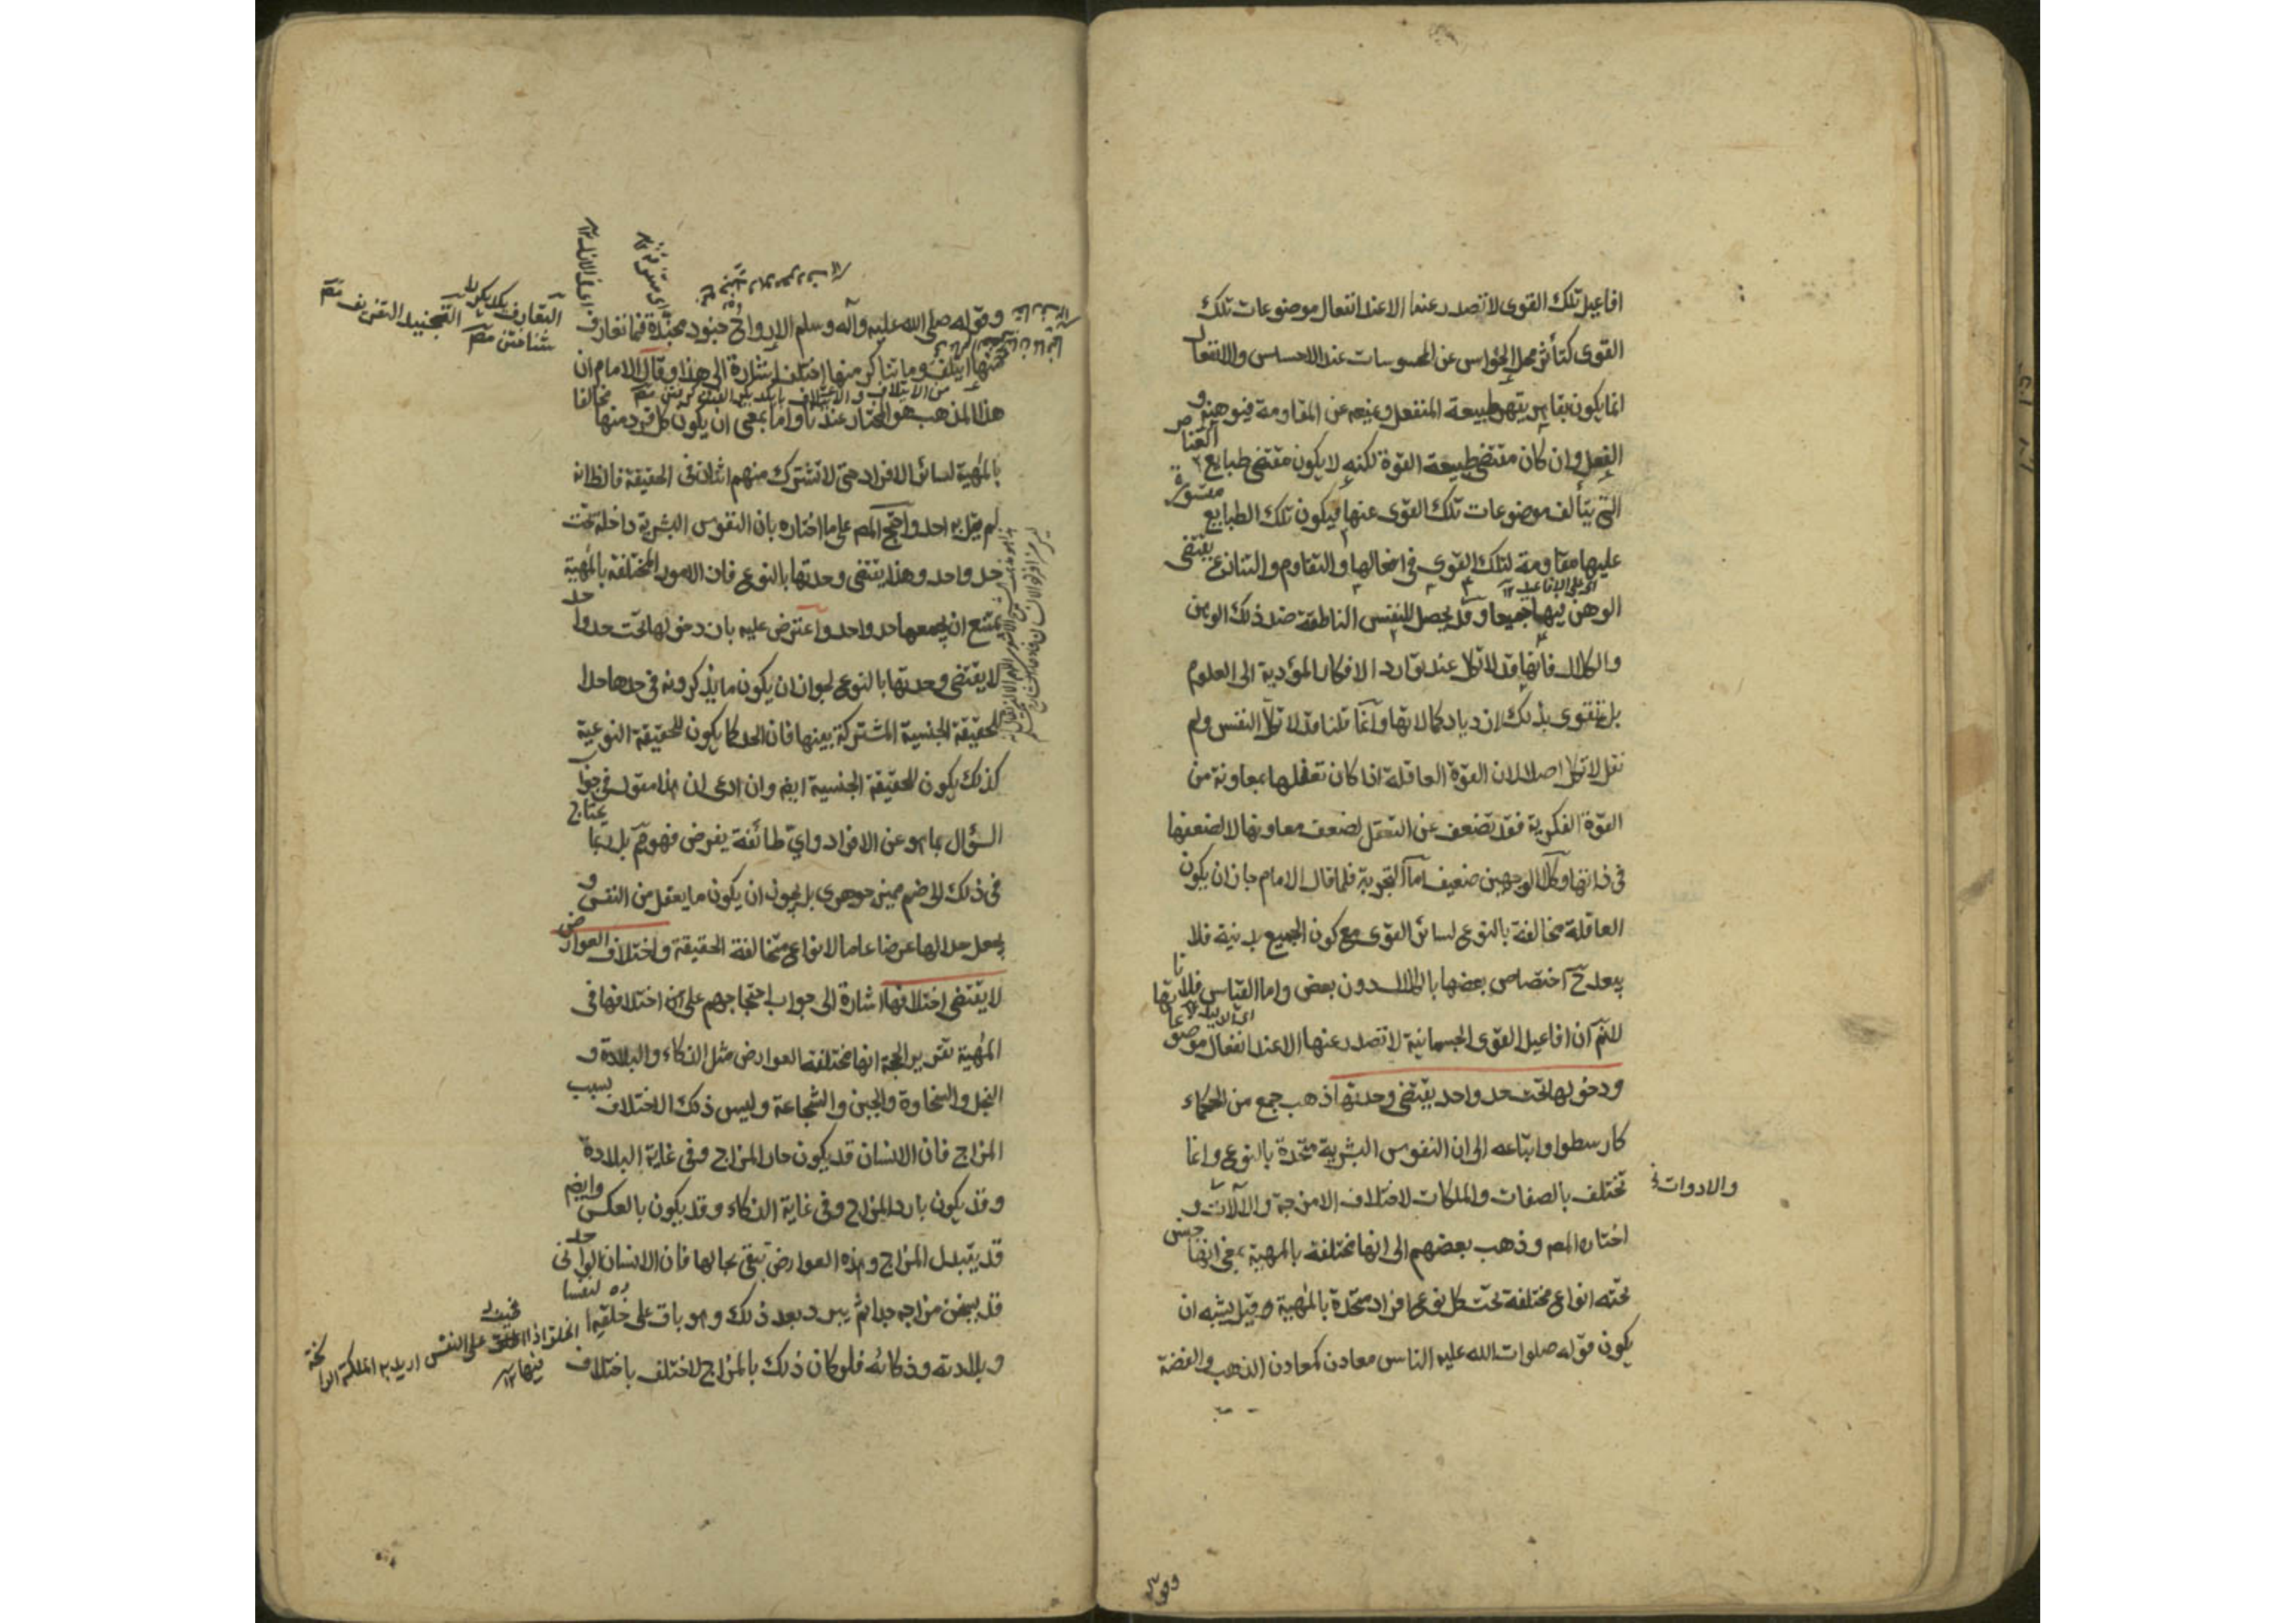 افاعيل تلك القوى لا تصدر عنها الا عند انفعال موضوعات تلك
القوى كتأثر محل الحواس عن المحسوسات عند الاحساس والانفعال
انما يكون بقاسر يقهر طبيعة المنفعل ويمنعه عن المقاومة فيوهنه و
الفعل وان كان مقتضى طبيعة القوة لكنه لا يكون مقتضى طبايع العناصر
التي يتألف موضوعات تلك القوى عنها فيكون تلك الطبايع مقسورة
عليها مقاومة لتلك القوى في افعالها والتقاوم والتنازع يقتضى
الوهن فيها جميعا وقد يحصل للنفس الناطقة ضد ذلك الوهن
والكلال فانها قد لا تكل عند توارد الافكار المؤدية الى العلوم
بل تتقوى بذلك ازدياد كمالاتها وانما قلنا قد لا تكل النفس ولم
نقل لا تكل اصلا لان القوة العاقلة اذا كان تعقلها بمعاونة من
القوة الفكرية فقد تضعف عن التعقل لضعف معاونها لا لضعفها
في ذاتها وكلا الوجهين ضعيف اما التجربة فلما قال الامام جاز ان يكون
العاقلة مخالفة بالنوع لسائر القوى مع كون الجميع بدنية فلا
يبعد ح اختصاص بعضها بالكلال دون بعض واما القياس فلانا
لا نم ان افاعيل القوى الجسمانية لا تصدر عنها الا عند انفعال موضوعاتها
ودخولها تحت حد واحد يقتضى وحدتها ذهب جمع من الحكماء
كارسطو واتباعه الى ان النفوس البشرية متحدة بالنوع وانما
تختلف بالصفات والملكات لاختلاف الامزجة والآلات و
والادوات
اختاره المصـ وذهب بعضهم الى انها مختلفة بالمهية بمعنى انها جنس
تحته انواع مختلفة تحت كل نوع افراد متحدة بالمهية وقيل يشبه ان
يكون قوله صلوات الله عليه الناس معادن كمعادن الذهب والفضة
وقوله
وقوله صلى الله عليه وآله وسلم الارواح جنود مجندة فما تعارف
منها ايتلف وما تناكر منها اختلف اشارة الى هذا وقال الامام ان
هذا المذهب هو المختار عندنا واما بمعنى ان يكون كل فرد منها مخالفا
بالمهية لسائر الافراد حتى لا تشترك منهم اثنان في الحقيقة فالظ انه
لم يقل به احد واحتج المصـ على ما اختاره بان النفوس البشرية داخلة تحت
حد واحد وهذا يقتضى وحدتها بالنوع فان الامور المختلفة بالمهية
يمتنع ان يجمعها حد واحد واعترض عليه بان دخولها تحت حد واحد
لا يقتضى وحدتها بالنوع لجواز ان يكون ما يذكرونه في حدها حدا
للحقيقة الجنسية المشتركة بينها فان الحد كما يكون للحقيقة النوعية
كذلك يكون للحقيقة الجنسية ايضا وان ادعى ان هذا مقول في جواب
السؤال بما هو عن الافراد واي طائفة يفرض فهو مم بل ربما يحتاج
في ذلك الى ضم مميز جوهرى بل يجوز ان يكون ما يعقل من النفس و
يجعل حدا لها عرضا عاما لانواع متخالفة الحقيقة واختلاف العوارض
لا يقتضى اختلافها اشارة الى جواب احتجاجهم على ان اختلافها في
المهية تقرير الحجة انها مختلفة العوارض مثل الذكاء والبلادة و
البخل والسخاوة والجبن والشجاعة وليس ذلك الاختلاف بسبب
المزاج فان الانسان قد يكون حار المزاج وفى غاية البلادة
وقد يكون بارد المزاج وفى غاية الذكاء وقد يكون بالعكس وايضا
قد يتبدل المزاج وهذه العوارض تبقى بحالها فان الانسان الواحد
قد يسخن مزاجه جدا ثم يبرد بعد ذلك وهو باق على خلقه
وبلادته وذكائه فلو كان ذلك بالمزاج لاختلف باختلاف